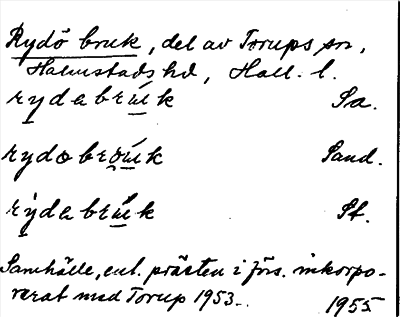 Rydö bruk, del av Torups sn,
Halmstads hd, Hall. l.
rydabruk Sa.
rydobrouk Sand.
rydabruk St.
Samhälle, enl. prästen i förs. inkorpo-
rerat med Torup 1953. 1955